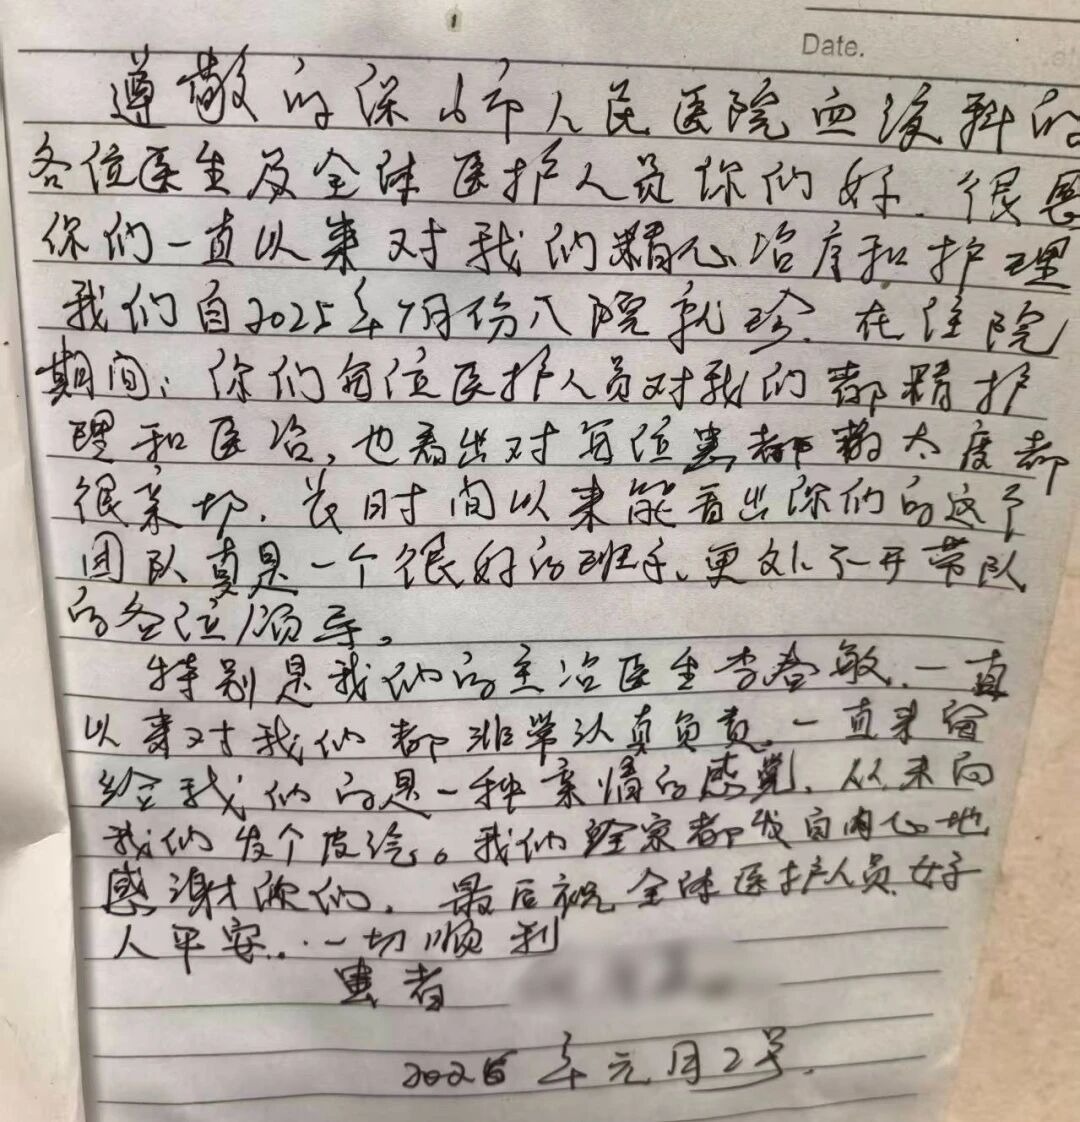 Date.
遵敬的保山市人民医院血液科的
各位医生及全体医护人员你们好.很感
你们一直以来对我们精心治疗和护理
我们自2025年9月份入院就珍.在住院
期间,你们每位医护人员对我们都精护
理和医治,也看出对每位患都的太度都
很亲切.长时间以来能看出你们的这个
团队真是一个很好的班子、更处不开带队
的各位领导。
特别是我们的主治医生李春敏.一直
以来对我们都非常认真负责.一直来
给我们的是一种亲情的感觉.从未向
我们发个皮气。我们全家都发自内心地
感谢你们.最后祝全体医护人员好
人平安..一切顺利
患者
2026年元月2号.